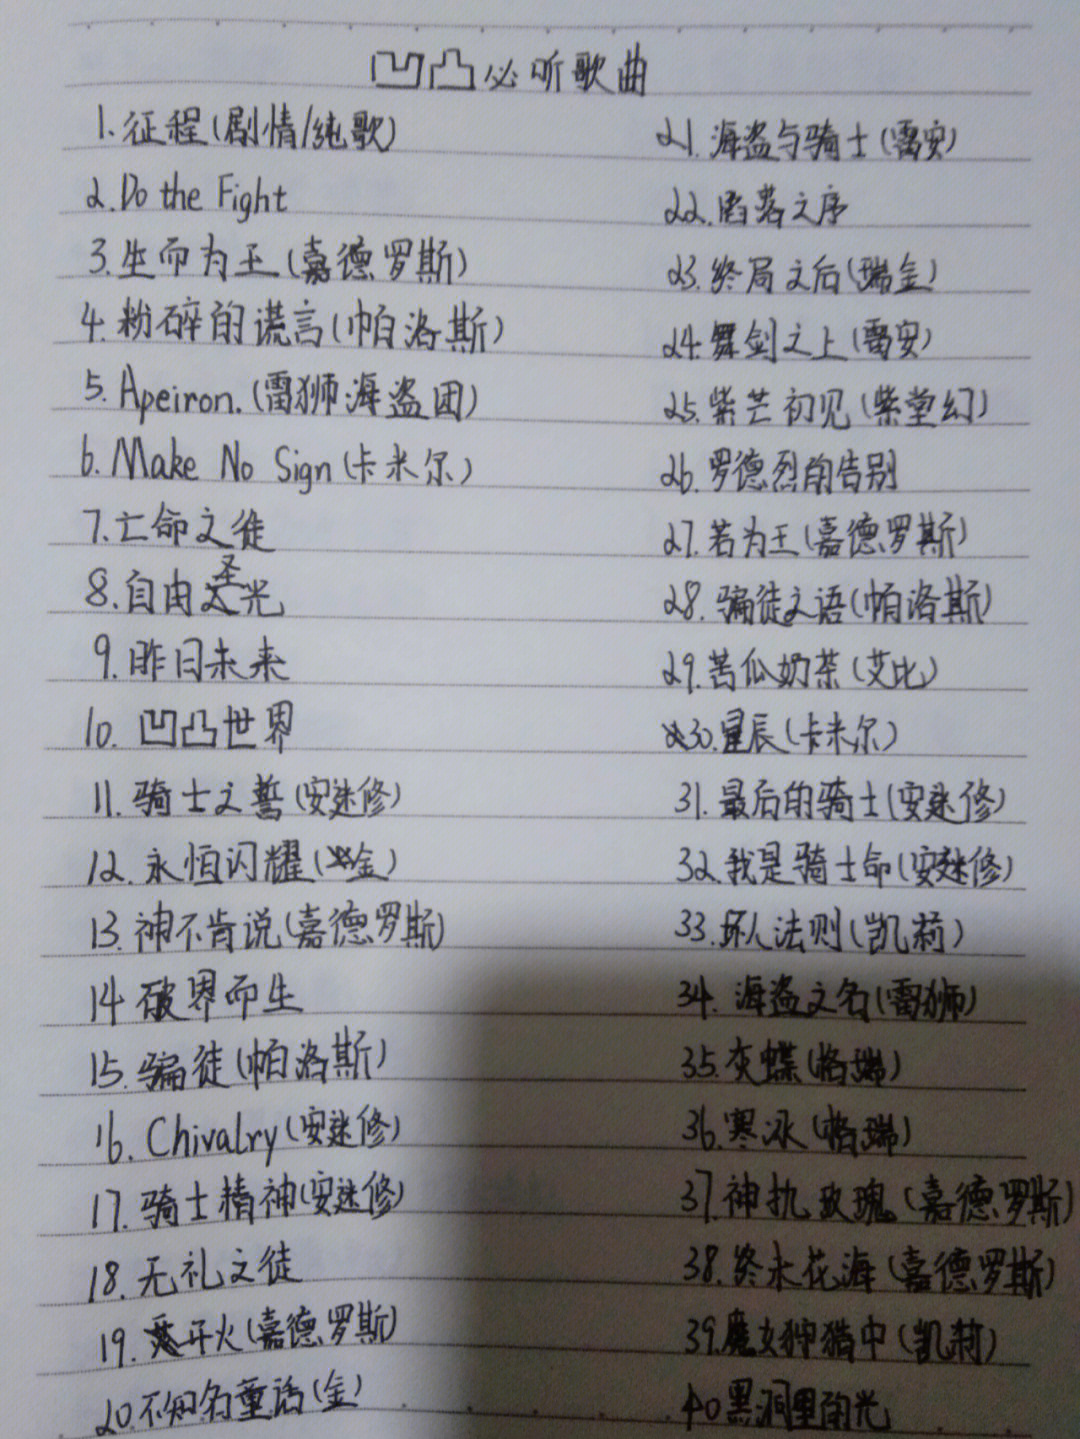 凹凸必听歌曲
1.征程(剧情/纯歌)
2.Do the Fight
3.生而为王(嘉德罗斯)
4.粉碎的谎言(帕洛斯)
5.Apeiron.(雷狮海盗团)
6.Make No Sign(卡米尔)
7.亡命之徒
8.自由圣光
9.昨日未来
10.凹凸世界
11.骑士之誓(安迷修)
12.永恒闪耀(金)
13.神不肯说(嘉德罗斯)
14.破界而生
15.骗徒(帕洛斯)
16.Chivalry(安迷修)
17.骑士精神(安迷修)
18.无礼之徒
19.开火(嘉德罗斯)
20.不知名童话(金)
21.海盗与骑士(雷安)
22.陷落之序
23.终局之后(瑞金)
24.舞剑之上(雷安)
25.紫芒初见(紫堂幻)
26.罗德烈的告别
27.若为王(嘉德罗斯)
28.骗徒之语(帕洛斯)
29.苦瓜奶茶(艾比)
30.星辰(卡米尔)
31.最后的骑士(安迷修)
32.我是骑士命(安迷修)
33.坏人法则(凯莉)
34.海盗之名(雷狮)
35.灰蝶(格瑞)
36.寒冰(格瑞)
37.神执玫瑰(嘉德罗斯)
38.终末花海(嘉德罗斯)
39.魔女狆猫中(凯莉)
40黑洞里的光